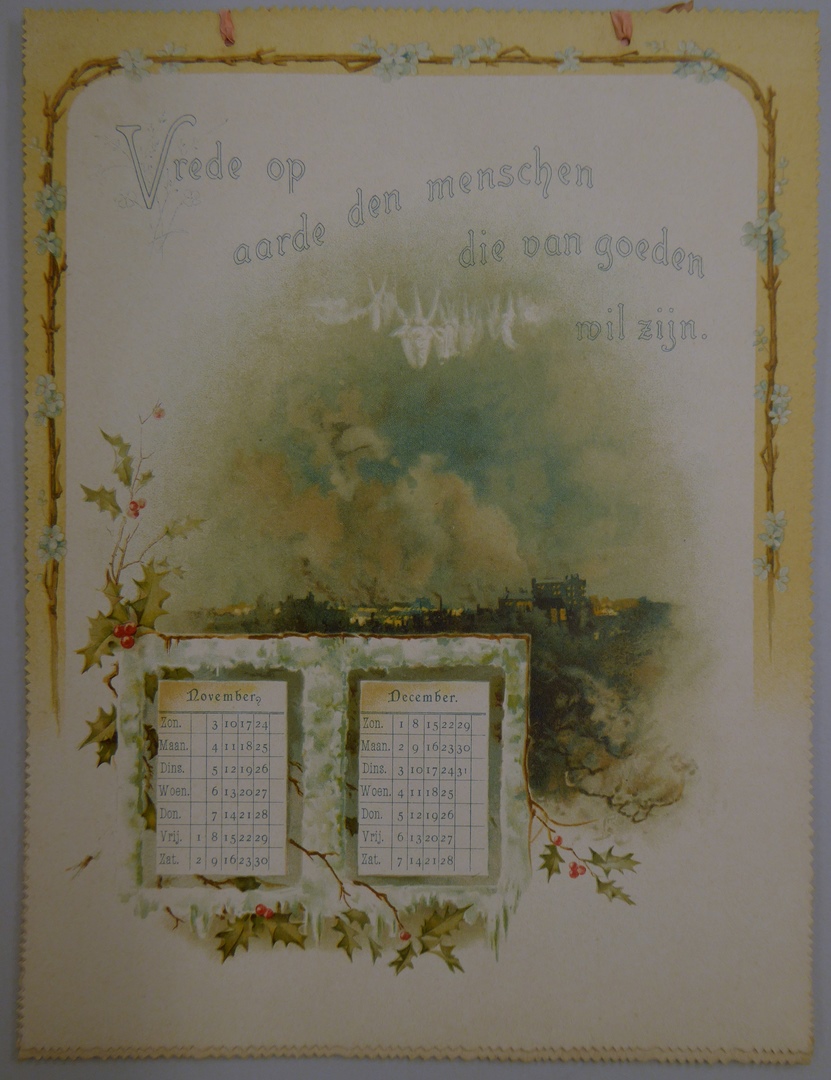 Vrede op
aarde den menschen
die van goeden
wil zijn.
November.
Zon. 3 10 17 24
Maan. 4 11 18 25
Dins. 5 12 19 26
Woen. 6 13 20 27
Don. 7 14 21 28
Vrij. 1 8 15 22 29
Zat. 2 9 16 23 30
December.
Zon. 1 8 15 22 29
Maan. 2 9 16 23 30
Dins. 3 10 17 24 31
Woen. 4 11 18 25
Don. 5 12 19 26
Vrij. 6 13 20 27
Zat. 7 14 21 28